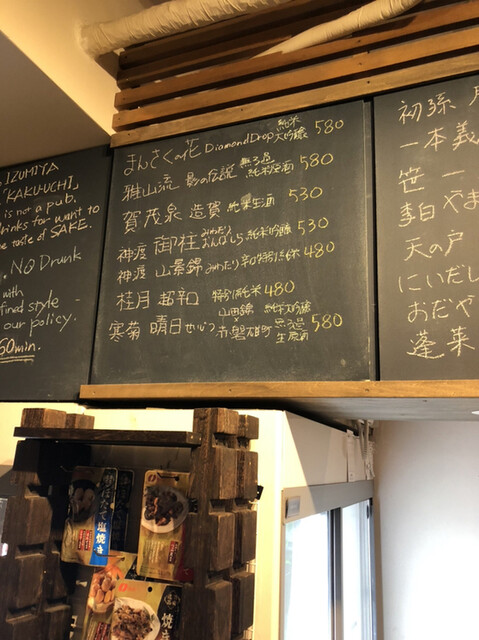 IZUMIYA
"KAKU-UCHI",
is not a pub.
drinks for want to
the taste of SAKE.
. NO Drunk
with
fined style -
our policy.
60min.
まんさくの花 Diamond Drop 純米大吟醸 580
雅山流 影の伝説 無ろ過純米原酒 580
賀茂泉 造賀 純米生酒 530
神渡 御柱 みわたりおんばしら 純米吟醸 530
神渡 山景錦 みわたり辛口特別純米 480
桂月 超辛 特別純米 480
寒菊 晴日 せいじつ 山田錦 純米大吟醸
赤磐雄町 無ろ過生原酒 580
初孫
一本義
笹一
李白 やま
天の戸
にいだし
おだや
蓬莱
塩焼き
焼き